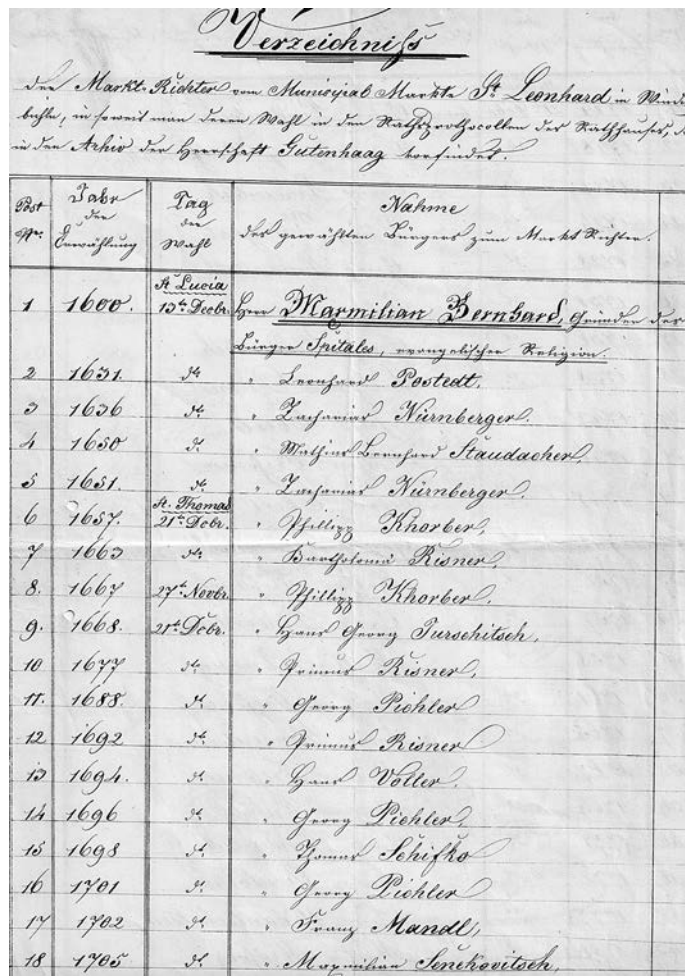 Verzeichniss
der Markt-Richter vom Municipal Markte St. Leonhard in Wind
bühln, in soweit man deren Wahl in den Rathsprothocollen des Rathhauses, d
in den Archiv der Herrschaft Gutenhaag vorfindet.
Post Nr. Jahr der Erwählung Tag der Wahl Nahme des gewählten Bürgers zum Markt Richter.
St. Lucia
1 1600. 13t. Decbr. Herr Marmilian Bernhard, Gründer des
Bürger Spitales, evangelischer Religion.
2 1631. dt. " Leonhard Postedt.
3 1636 dt. " Zacharias Nürnberger.
4 1650 dt. " Mathias Bernhard Staudacher,
5 1651. dt. " Zacharias Nürnberger.
St. Thomas
6 1657. 21t. Dcbr. " Phillipp Khorber,
7 1663 dt. " Bartholomä Risner,
8. 1667 27t. Novbr. " Phillipp Khorber.
9. 1668. 21t. Dcbr. " Hans Georg Turschitsch,
10 1677 dt. " Primus Risner,
11. 1688. dt. " Georg Pichler
12 1692 dt. " Primus Risner
13 1694. dt. " Hans Voller.
14 1696 dt. " Georg Pichler,
15 1698 dt. " Thomas Schifko
16 1701 dt. " Georg Pichler
17 1702 dt. " Franz Mandl,
18 1705 dt. " Maxmilian Senekovitsch,